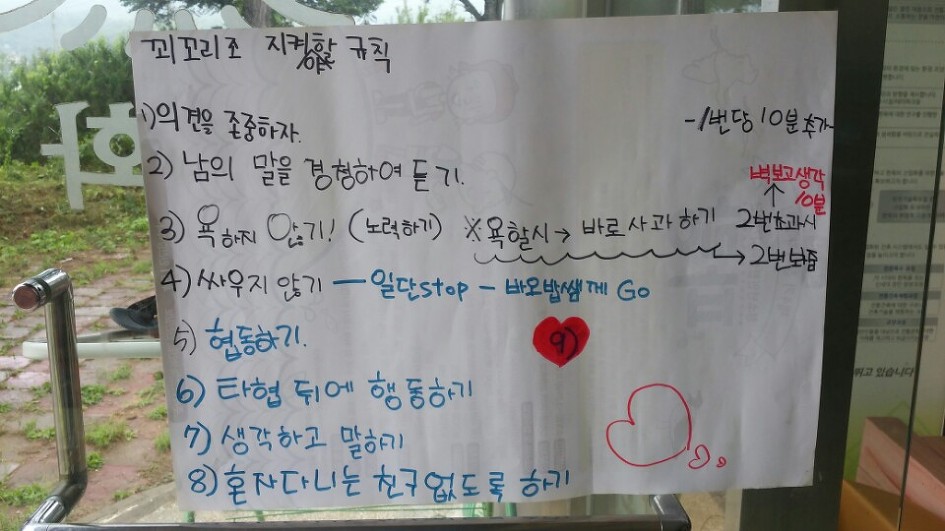 꾀꼬리조 지켜야할 규칙
1) 의견을 존중하자.
2) 남의 말을 경청하여 듣기.
-1번당 10분 추가
벽보고생각
10분
3) 욕하지 않기! (노력하기) ※욕할시→ 바로 사과하기
2번초과시
2번봐줌
4) 싸우지 않기 — 일단stop – 바오밥쌤께 Go
5) 협동하기.
9)
6) 타협 뒤에 행동하기
7) 생각하고 말하기
8) 혼자다니는 친구없도록 하기
뛰고 있습니다